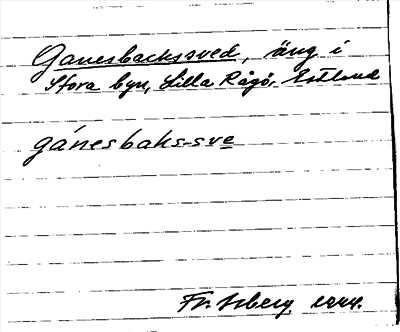 Ganesbackssved, äng i
Stora byn, Lilla Rågö, Estland
gánesbaks-sve
Fr. 1944.